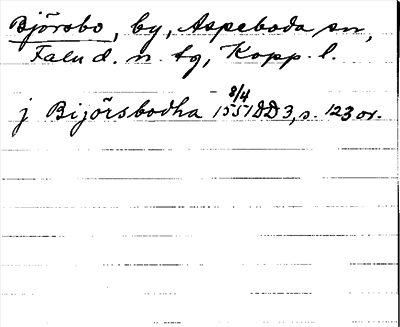 Björsbo, by, Aspeboda sn,
Falu d. n. tg, Kopp. l.
j Bijörsbodha 8/4 1551 DD 3, s. 123 or.